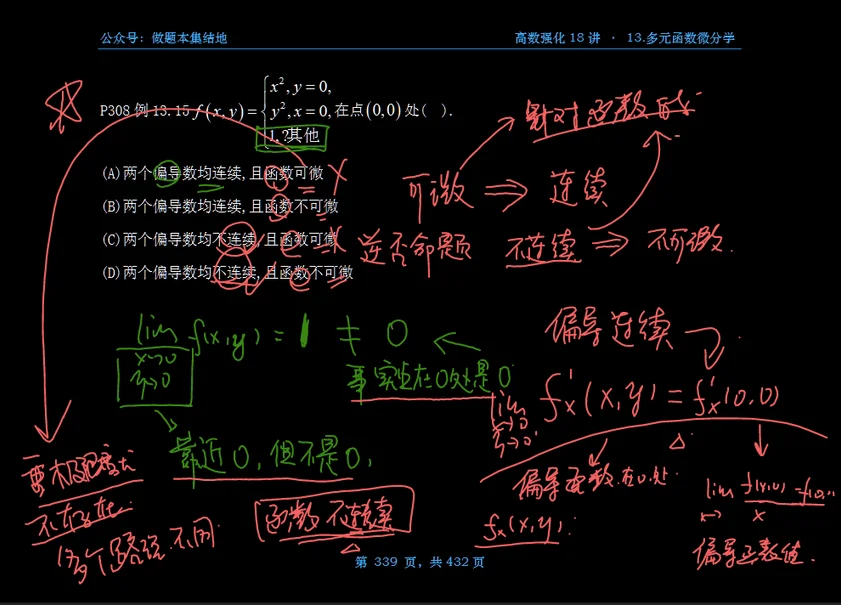 公众号: 做题本集结地
高数强化 18 讲 · 13.多元函数微分学
P308 例 13.15 f(x,y)= { x², y=0,
y², x=0, 在点(0,0)处( ).
1, 其他
(A)两个偏导数均连续,且函数可微 = X
(B)两个偏导数均连续,且函数不可微
(C)两个偏导数均不连续,且函数可微 X
(D)两个偏导数均不连续,且函数不可微
针对函数
可微 ⇒ 连续
逆否命题 不连续 ⇒ 不可微.
lim f(x,y) = 1 ≠ 0
x→0
y→0
事实上在0处是0
靠近0, 但不是0,
函数不连续
不存在
多个路径不同
偏导连续
lim f'x(x,y) = f'x(0,0)
x→0
y→0
偏导函数在0处
fx(x,y)
lim
x
偏导函数值.
第 339 页, 共 432 页